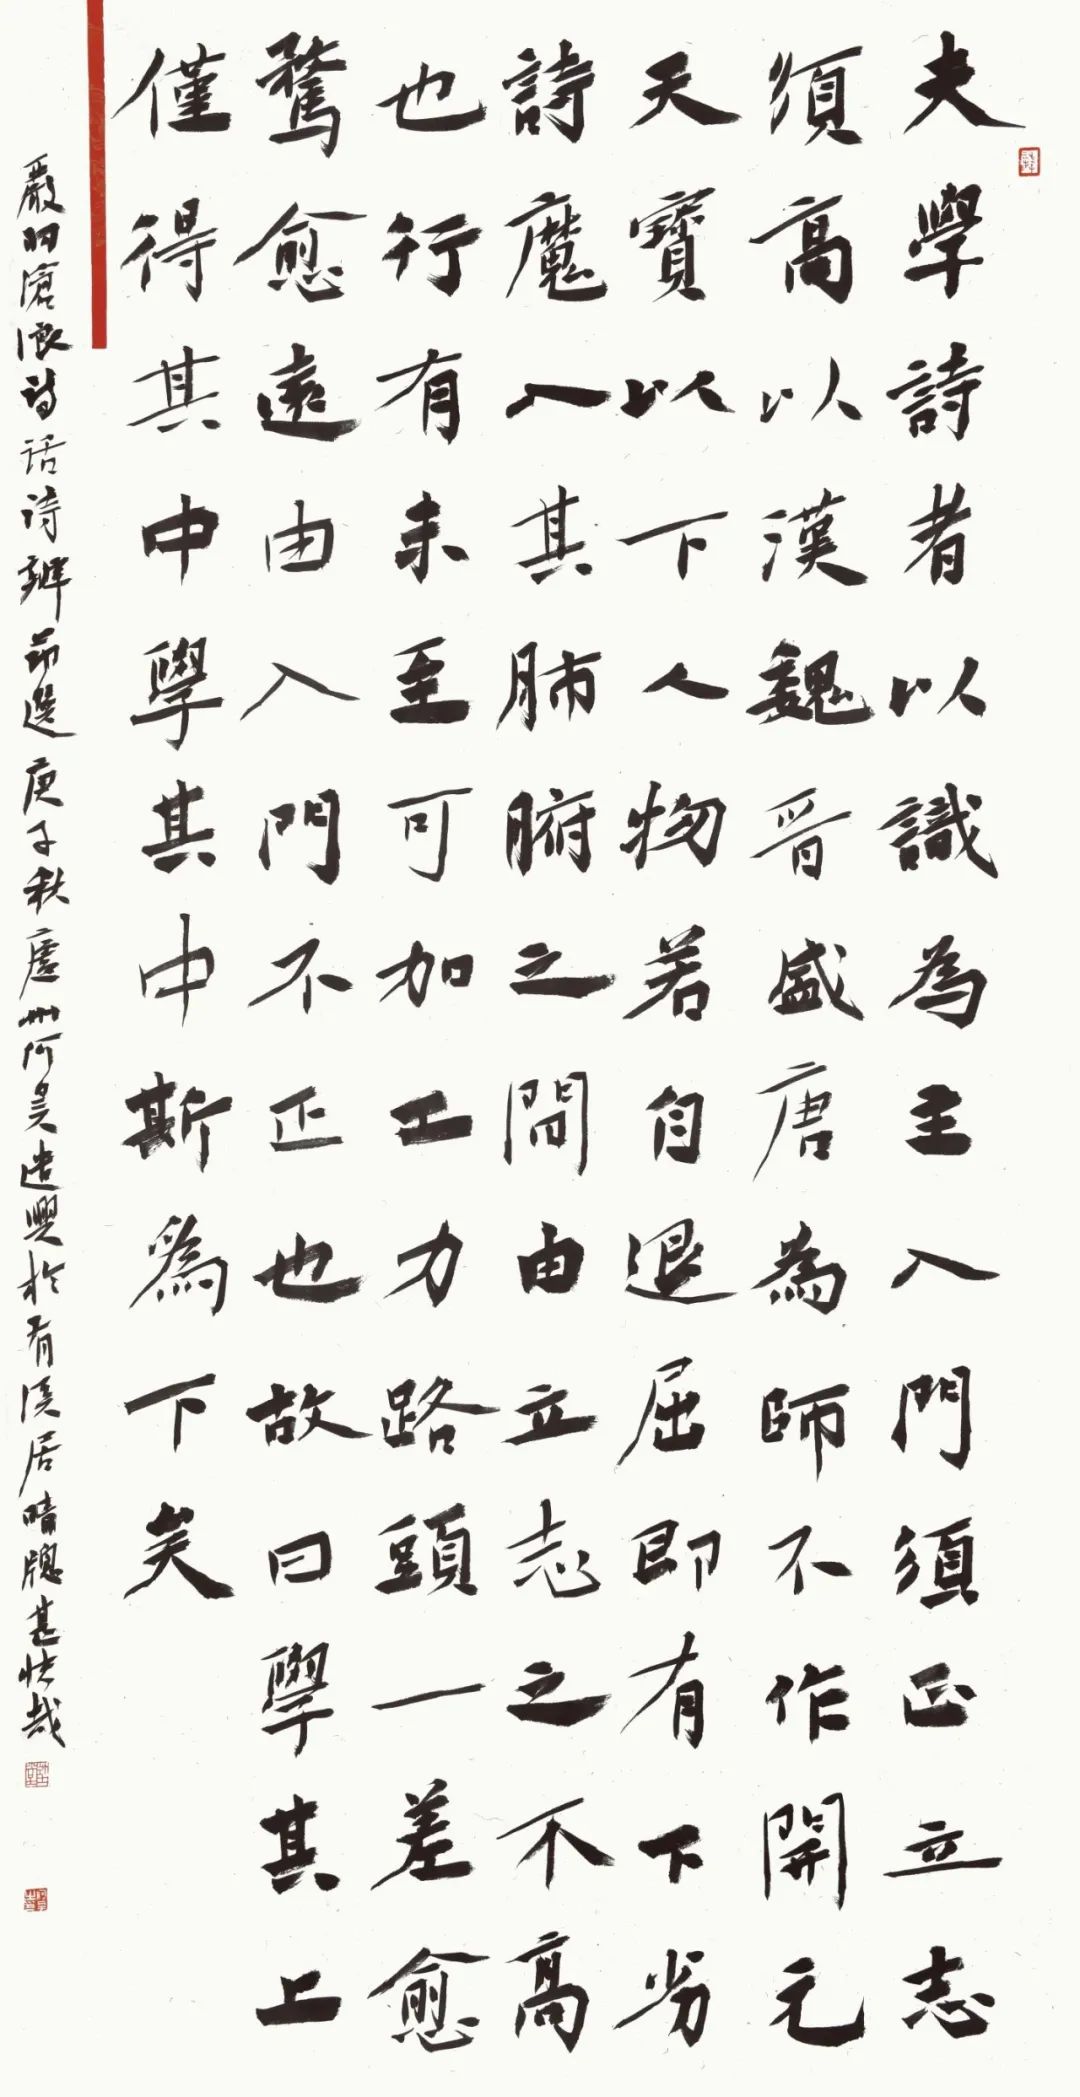 夫學詩者以識為主入門須正立志
須高以漢魏晉盛唐為師不作開元
天寶以下人物若自退屈即有下劣
詩魔入其肺腑之間由立志之不高
也行有未至可加工力路頭一差愈
騖愈遠由入門不正也故曰學其上
僅得其中學其中斯爲下矣
嚴羽滄浪詩话詩辨節選庚子秋廬州何昊遣興於有溪居晴牕甚快哉